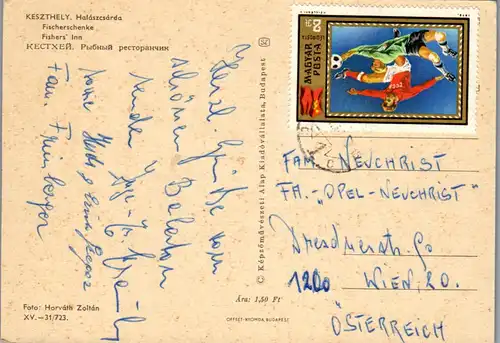 KESZTHELY. Halászcsárda
Fischerschenke
Fishers' Inn
КЕСТХЕЙ. Рыбный ресторанчик
Herzl. Grüße vom
schönen Balaton
senden
Fam.
Foto: Horváth Zoltán
XV.—31/723.
© Képzőművészeti Alap Kiadóvállalata, Budapest
Ára: 1,50 Ft
OFFSET-NYOMDA, BUDAPEST
MAGYAR
POSTA
FAM. NEUCHRIST
FA. „OPEL-NEUCHRIST"
Dresdnerstr.
1200 WIEN, 20.
ÖSTERREICH